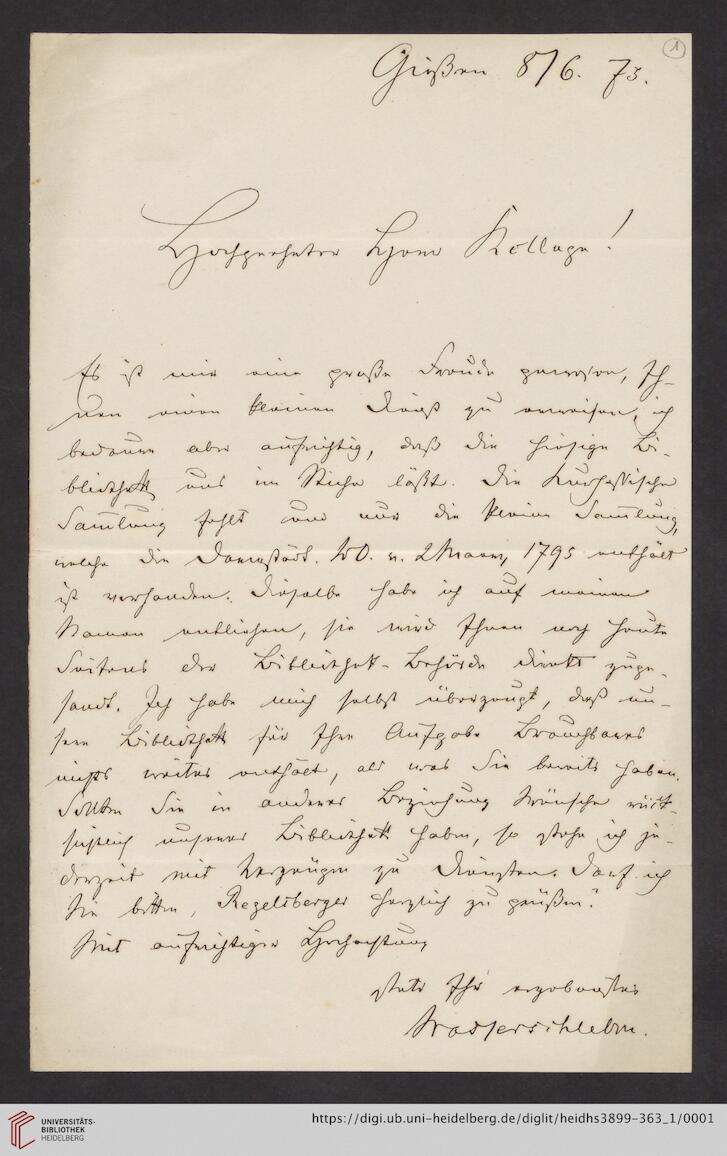 1
Gießen 8/6. 73.
Hochgeehrter Herr Kollege!
Es ist mir eine große Freude gewesen, Ih-
nen einen kleinen Dienst zu erweisen, ich
bedaure aber aufrichtig, daß die hiesige Bi-
bliothek uns im Stiche läßt. Die Kurhessische
Samlung fehlt und nur die kleine Samlung,
welche die Darmstädt. WO. v. 2 März, 1795 enthält
ist vorhanden. Dieselbe habe ich auf meinen
Namen entliehen, sie wird Ihnen noch heute
Seitens der Bibliothek-Behörde direkt zuge-
sandt. Ich habe mich selbst überzeugt, daß un-
sere Bibliothek für Ihre Aufgabe Brauchbares
nichts weiter enthält, als was Sie bereits haben.
Sollten Sie in anderer Beziehung Wünsche rück-
sichtlich unserer Bibliothek haben, so stehe ich je-
derzeit mit Vergnügen zu Diensten. Darf ich
Sie bitten, Regelsberger herzlich zu grüßen?
Mit aufrichtiger Hochachtung
stets Ihr ergebenster
Wasserschleben.
UNIVERSITÄTS-
BIBLIOTHEK
HEIDELBERG
https://digi.ub.uni-heidelberg.de/diglit/heidhs3899-363_1/0001